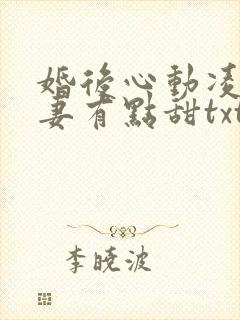 婚後心動凌
妻有點甜txt
李曉波